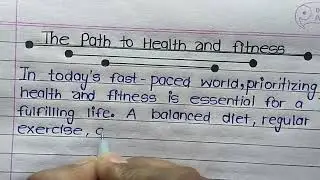 The Path to Health and fitness
In today's fast-paced world, prioritizing
health and fitness is essential for a
fulfilling life. A balanced diet, regular
exercise,